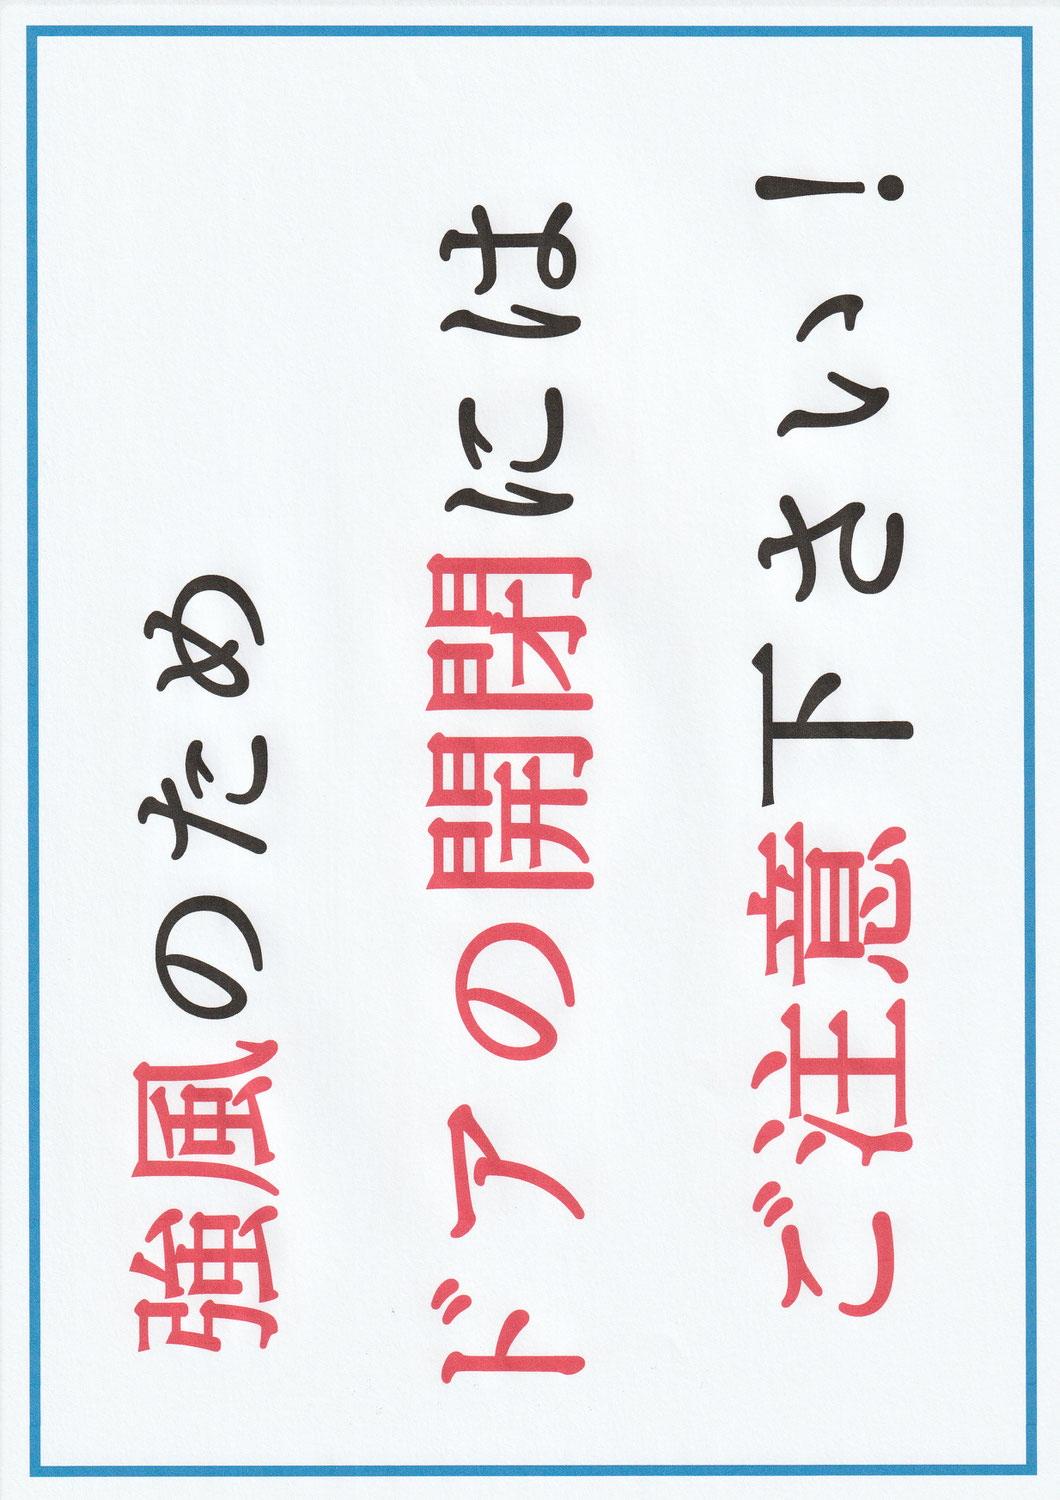 強風のため
ドアの開閉には
ご注意下さい!